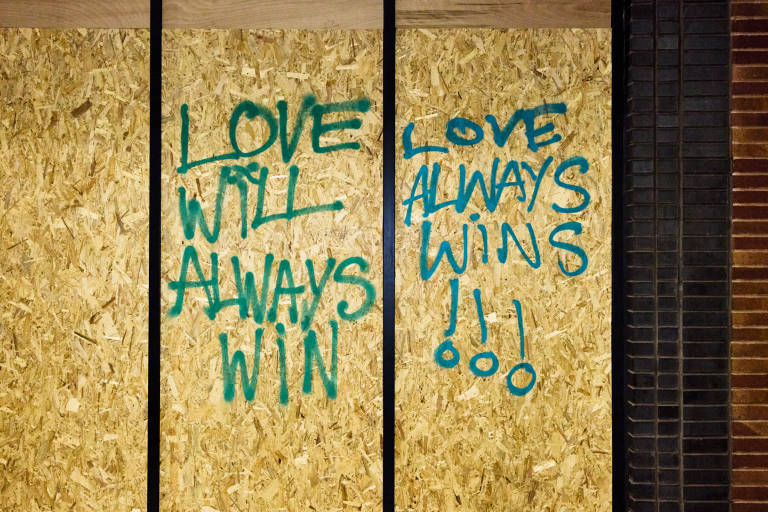 LOVE
WiLL
ALWAYS
WiN
LOVE
ALWAYS
WiNS
!!!